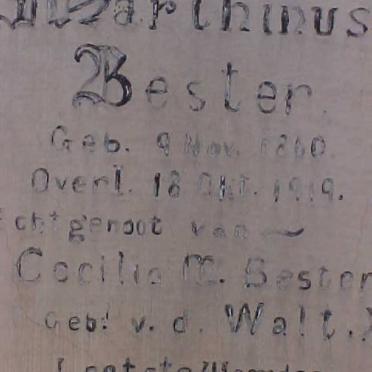 Marthinus
Bester.
Geb. 9 Nov. 1860.
Overl. 18 Okt. 1919.
chtgenoot van
Cecilia M. Bester
Geb: v. d. Walt.)